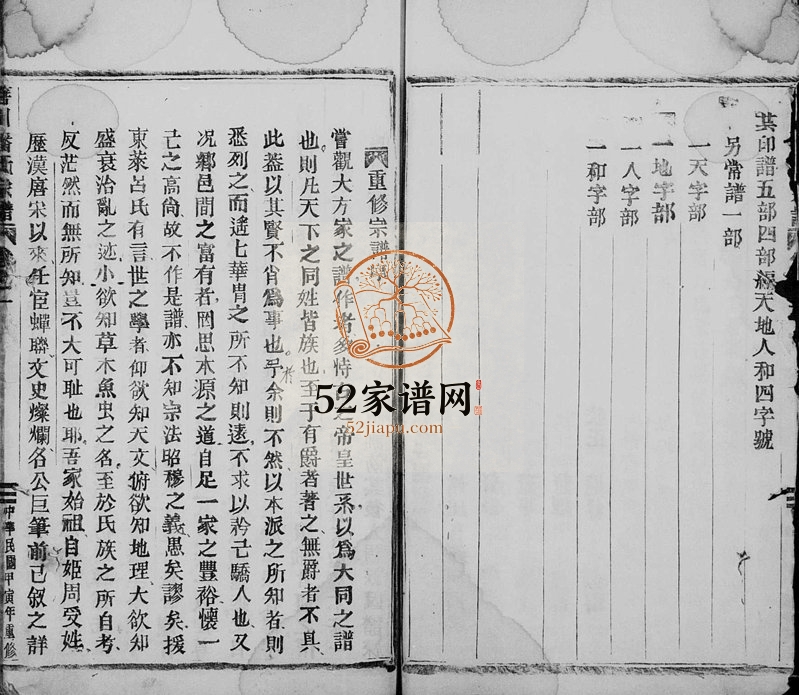 其印譜五部四部編天地人和四字號
另常譜一部
一天字部
一地字部
一人字部
一和字部
重修宗譜
嘗觀大方家之譜作者多特
之帝皇世系以爲大同之譜
也則凡天下之同姓皆族也至于有爵者著之無爵者不具
此蓋以其賢不肖爲事也乎余則不然以本派之所知者則
悉列之而遙七華冑之所不知則遠不求以矜己驕人也又
况鄉邑間之富有者罔思本源之道自足一家之豐裕懷一
己之高尙故不作是譜亦不知宗法昭穆之義愚矣謬矣援
東萊呂氏有言世之學者仰欲知天文俯欲知地理大欲知
盛衰治亂之迹小欲知草木魚虫之名至於氏族之所自考
反茫然而無所知豈不大可耻也耶吾家始祖自姬周受姓
歷漢唐宋以來仕宦蟬聯文史燦爛名公巨筆前已叙之詳
宗譜
中華民國甲寅年重修
52家谱网
52jiapu.com